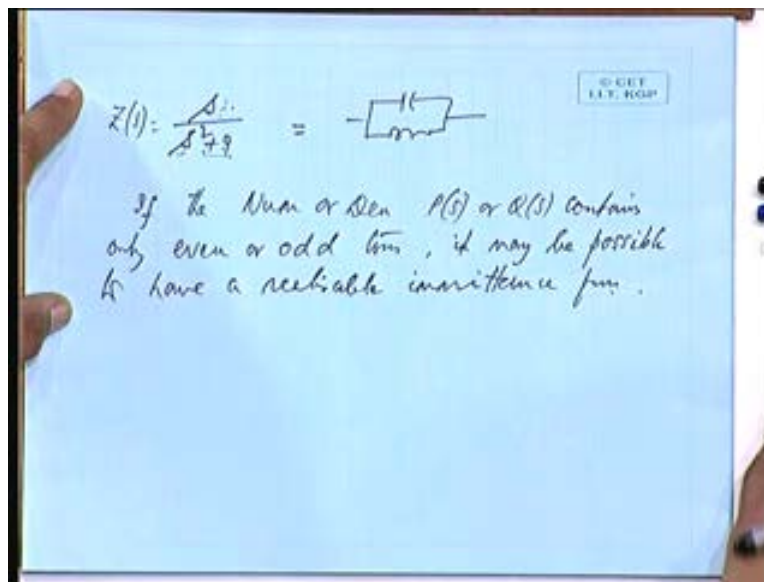 © CET
I.I.T. KGP
Z(s) = s / s²+9 =
If the Num or Den P(s) or Q(s) contains
only even or odd terms, it may be possible
to have a realizable immittance fun.